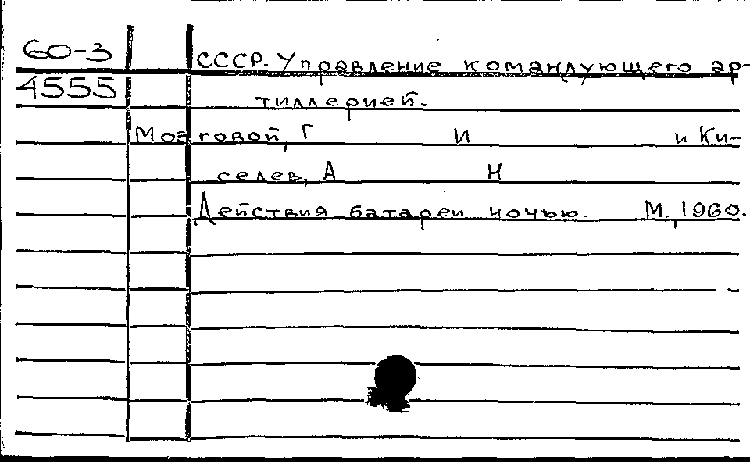 60-3 СССР. Управление командующего ар-
4555 тиллерией.
Мозговой, Г И и Ки-
селев, А Н
Действия батареи ночью. М., 1960.